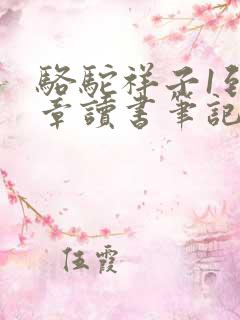 駱駝祥子1到
章讀書筆記
任霞